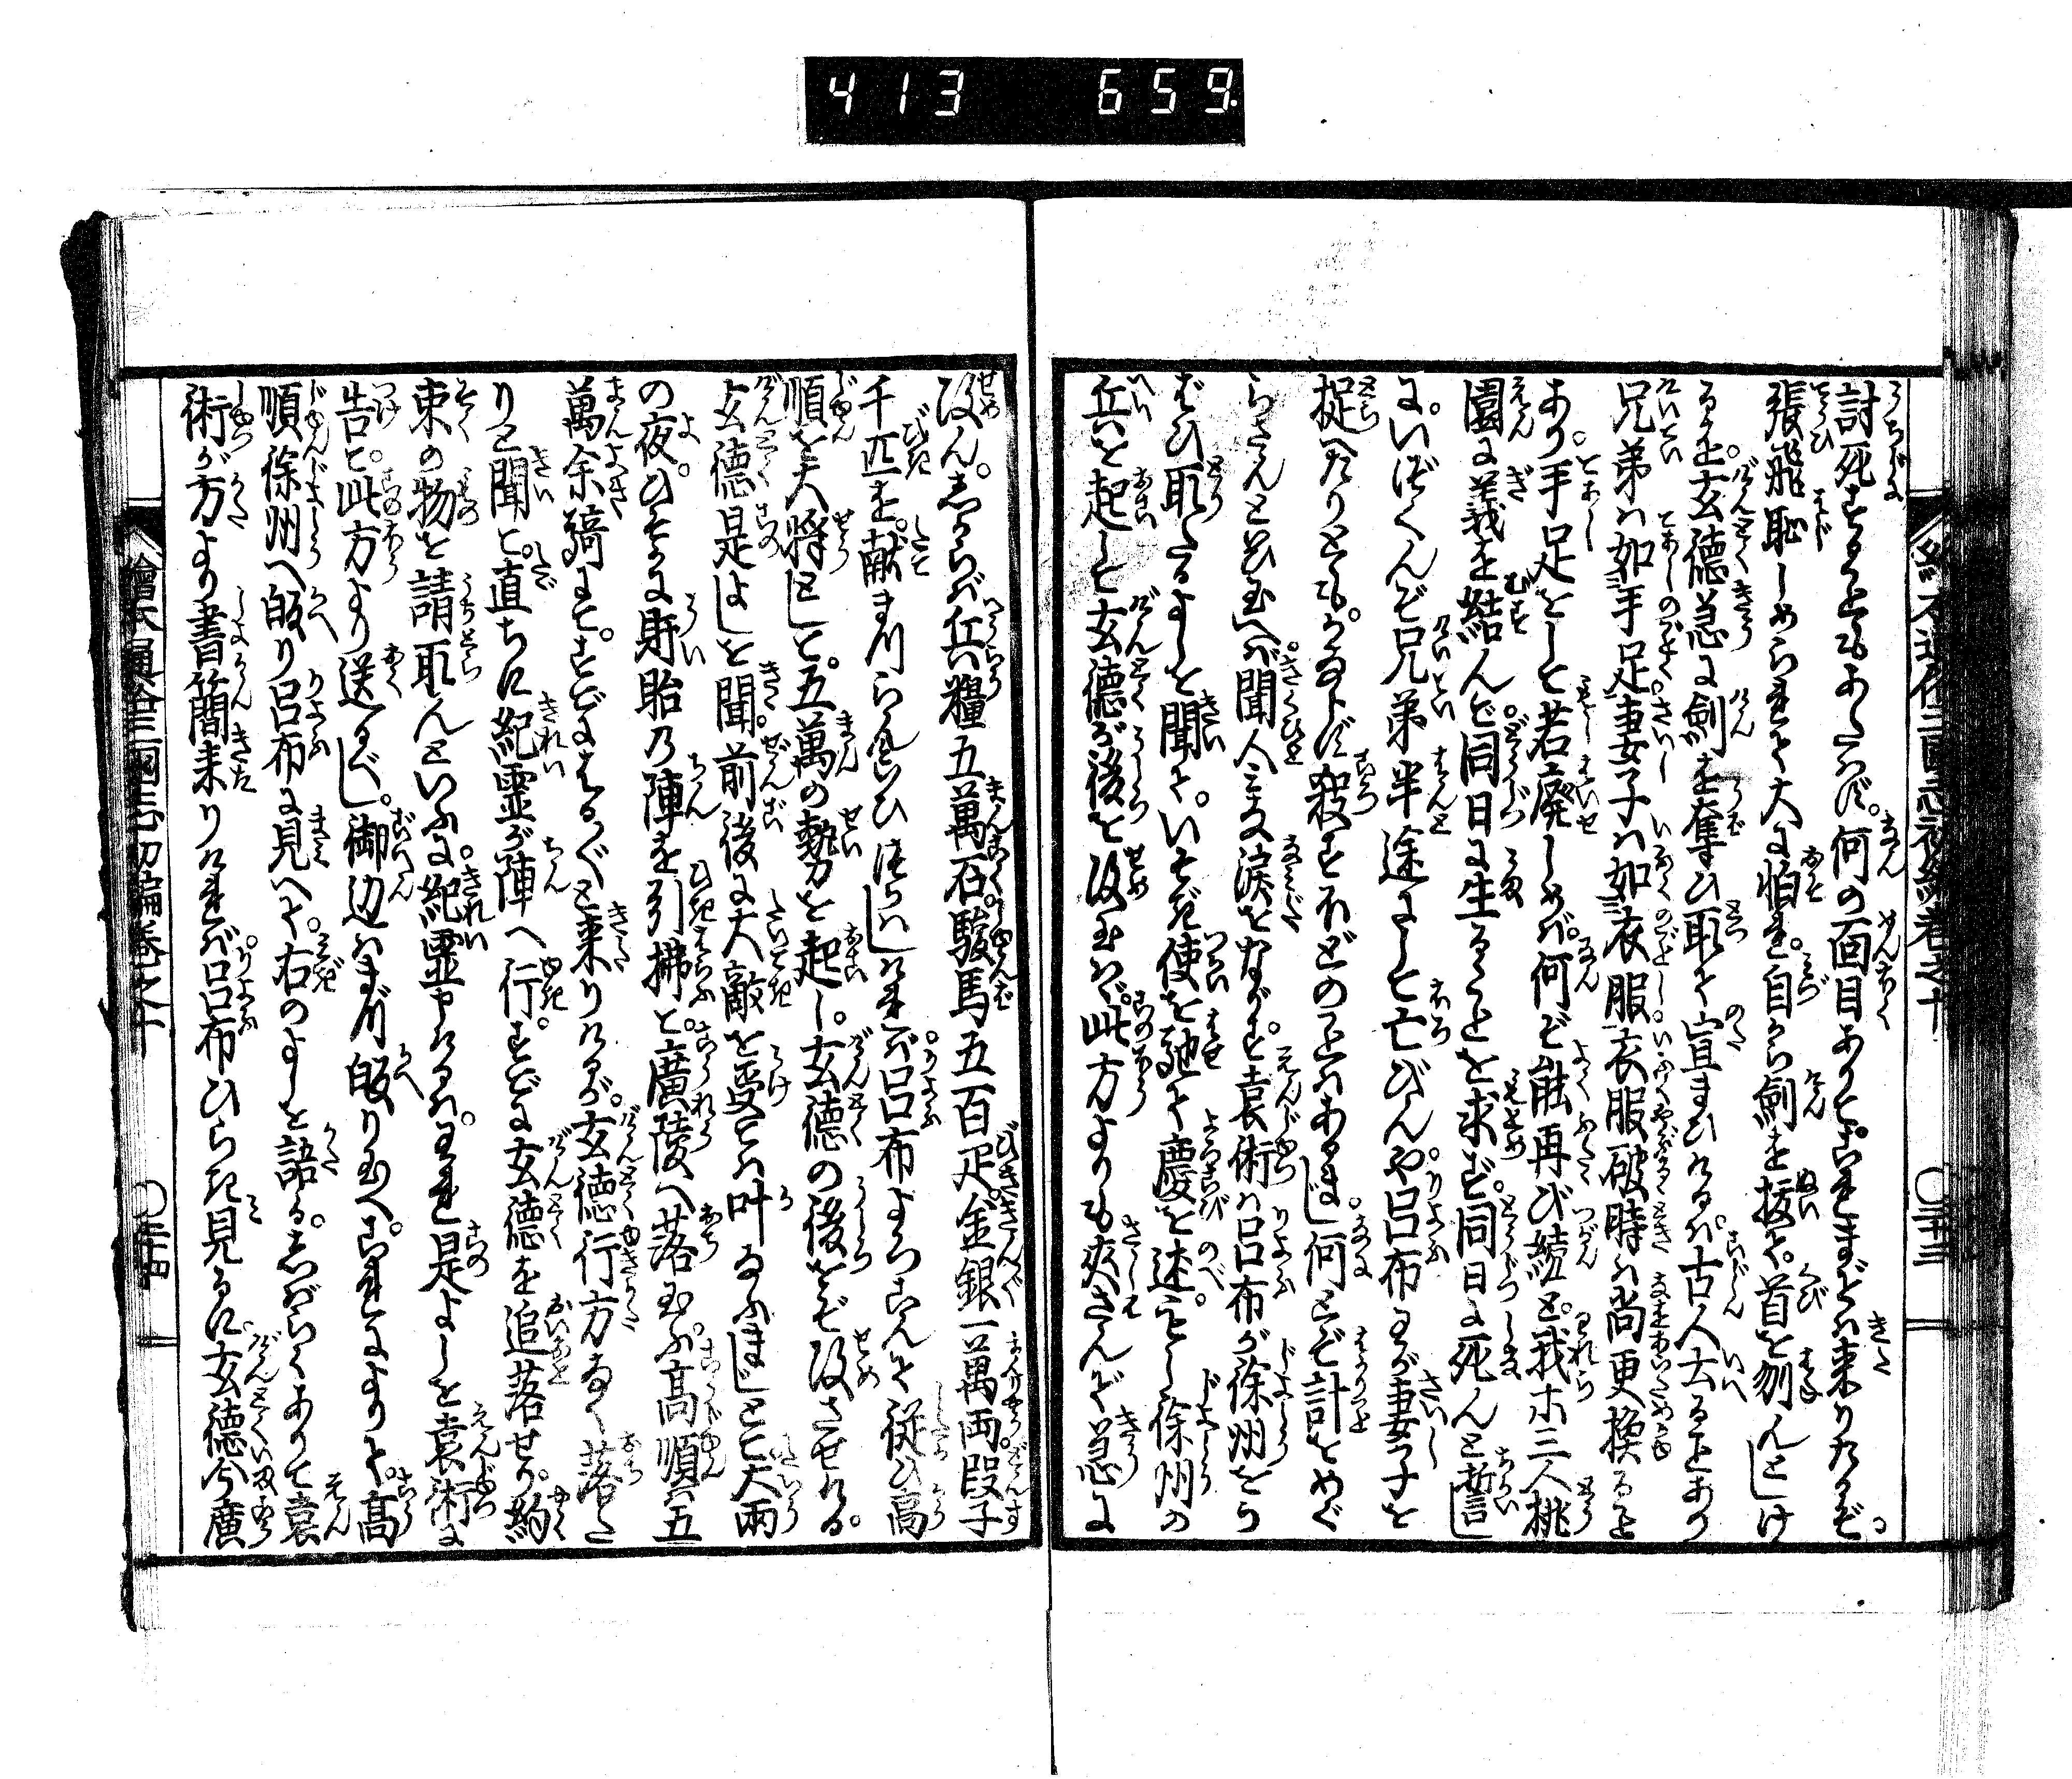 413 659
繪本通俗三國志初編卷之十 〇三十三
討死することもあたはず。何の面目ありて。これまでは来りたるぞ。
張飛恥しめられて大に怕れ。自から劍を抜て。首を刎んとしけ
るを。玄徳急に劍を奪ひ取て宣まひけるは。古人云ることあり
兄弟は如手足妻子は如衣服衣服破時は尚更換ること
あり。手足をして若廢しめば。何ぞ能再び續と我ホ三人桃
園に義を結んで。同日に生ることを求ず。同日に死んと誓し
に。いづくんぞ兄弟半途にして亡びんや。呂布わが妻子を
捉へたりとも。かならず殺すほどのことはあるまじ。何とぞ計をめぐ
らさんと宣へば。聞人みな涙をながす。袁術は呂布が徐州をう
ばひ取たるよしを聞て。いそぎ使を馳て慶を述。もし徐州の
兵を起して玄徳が後を攻玉はゞ。此方よりも夾さんで急に
攻ん。しからば兵糧五萬石。駿馬五百疋。金銀一萬両段子
千匹を。献まつらんといひ遣はしければ。呂布よろこんで従ひ高
順を大将として。五萬の勢を起し。玄徳の後をぞ攻させける。
玄徳是よしを聞。前後に大敵を受ては叶ふまじとて大雨
の夜。ひそかに盱眙の陣を引拂て。廣陵へ落玉ふ。高順は五
萬余騎にて。すでにはるかと来りけるが。玄徳行方なく落た
りと聞て。直ちに紀霊が陣へ行。すでに玄徳を追落せり。約
束の物を請取んといふに。紀霊申けるは。われ是よしを袁術に
告て。此方より送るべし。御辺はまづ皈り玉へ。これによりて。高
順徐州へ皈り呂布に見へて。右のよしを語る。しばらくありて袁
術が方より書簡来りければ。呂布ひらき見るに。玄徳今廣
繪本通俗三國志初編卷之十 〇三十四